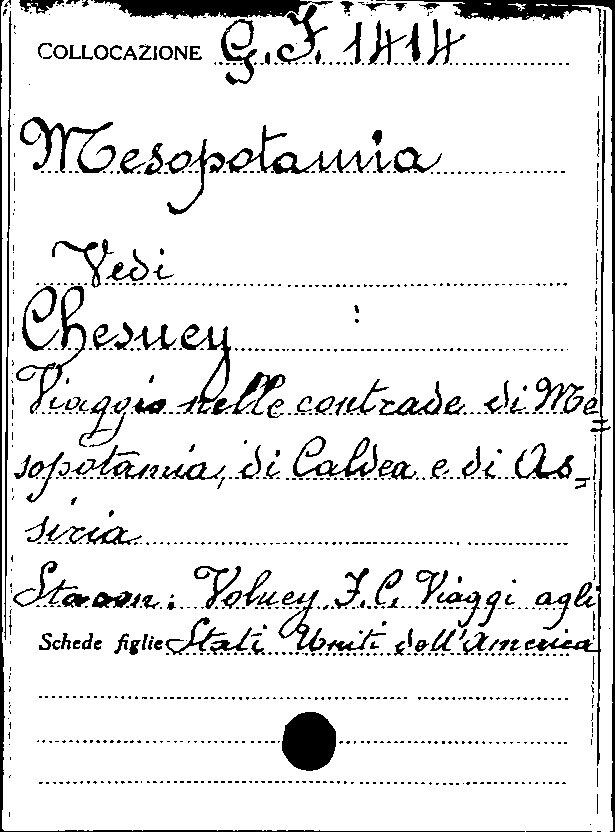 COLLOCAZIONE G.F. 1414
Mesopotamia
Vedi
Chesney
Viaggio nelle contrade di Me=
sopotamia, di Caldea e di As=
siria
Sta con: Volney F.C. Viaggi agli
Schede figlie Stati Uniti dell'America